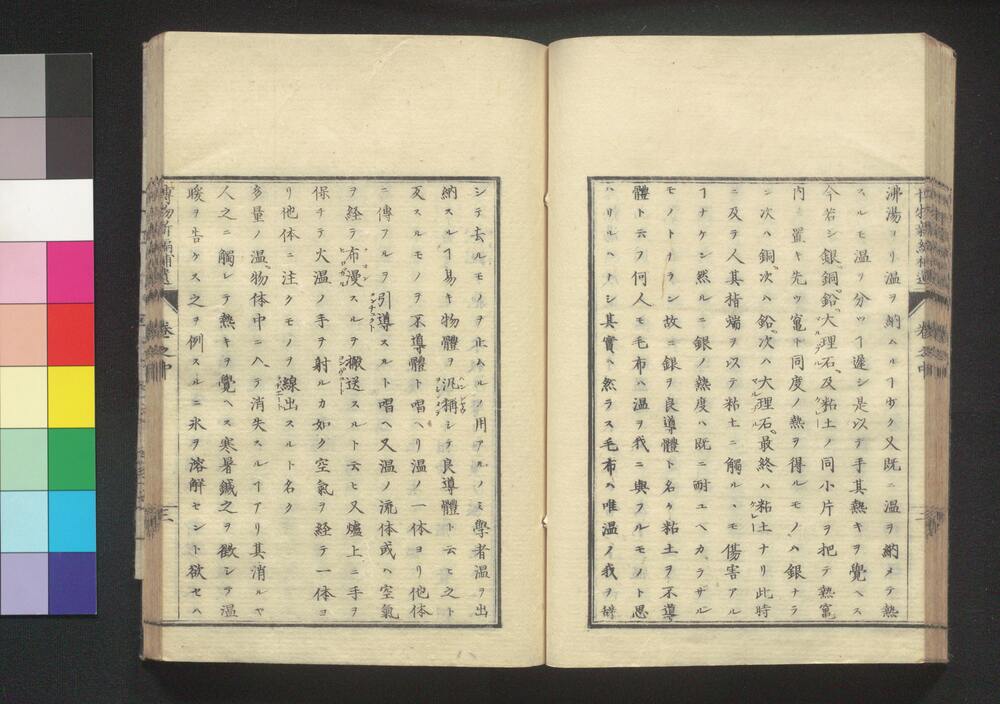 沸湯ヨリ温ヲ納ムルヿ少ク又既ニ温ヲ納メテ熱
スルモ温ヲ分ツヿ遲シ是以テ手其熱キヲ覺ヘス
今若シ銀銅鉛大理石及粘土ノ同小片ヲ把テ熱竃
内ニ置キ先ツ竃ト同度ノ熱ヲ得ルモノハ銀ナラ
ン次ハ銅次ハ鉛次ハ大理石最終ハ粘土ナリ此時
ニ及ヲ人其指端ヲ以テ粘土ニ觸ルヽモ傷害アル
ヿナケン然ルニ銀ノ熱度ハ既ニ耐ユヘカラザル
モノトナラン故ニ銀ヲ良導體ト名ケ粘土ヲ不導
體ト云フ何人モ毛布ハ温ヲ我ニ與フルモノト思
ハリルヘトシ其實ハ然ラス毛布ハ唯温ノ我ヲ辞
シテ去ルモノヲ止ムルノ用アルノミ學者温ヲ出
納スルヿ易キ物體ヲ汎稱シテ良導體ト云ヒ之ト
反スルモノヲ不導體ト唱ヘリ温ノ一体ヨリ他体
ニ傳フルヲ引導スルト唱ヘ又温ノ流体或ハ空氣
ヲ経テ布漫スルヲ搬送スルト云ヒ又爐上ニ手ヲ
保チテ火温ノ手ヲ射ルカ如ク空氣ヲ経テ一体ヨ
リ他体ニ注クモノヲ線出スルト名ク
多量ノ温物体中ニ入テ消失スルヿアリ其消ルヤ
人之ニ觸レテ熱キヲ覺ヘス寒暑鍼之ヲ徴シテ温
暖ヲ告ケス之ヲ例スルニ氷ヲ溶解セント欲セハ
卷之中